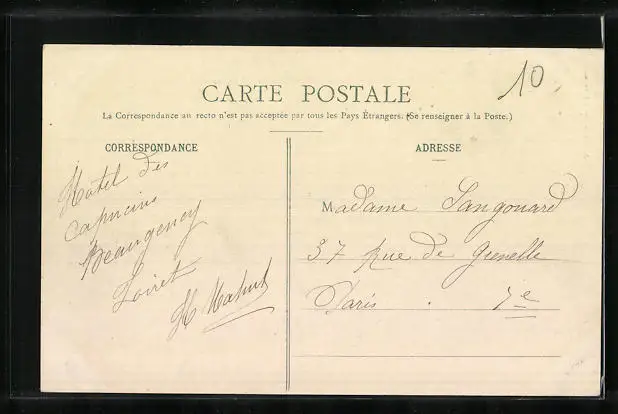 10
CARTE POSTALE
La Correspondance au recto n'est pas acceptée par tous les Pays Étrangers. (Se renseigner à la Poste.)
CORRESPONDANCE
Hôtel des
Capucins
Beaugency
Loiret
H Mahut
ADRESSE
Madame Sangouard
37 Rue de Grenelle
Paris. 7e